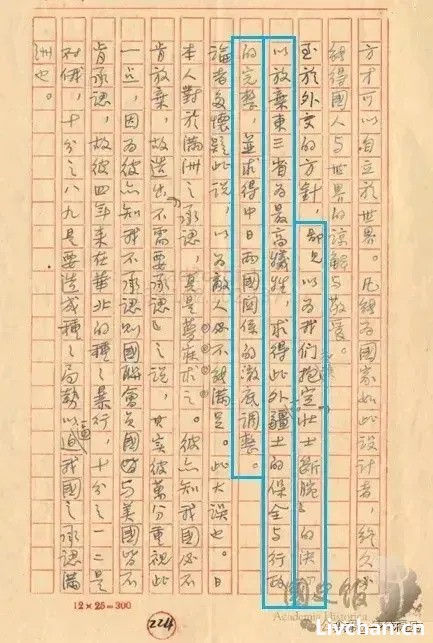 方才可以自立於世界。凡能為國家如此設計者,終久必
能得國人與世界的諒解與敬愛。
至於外交的方針,鄙見以為我們抱定壯士斷腕的決
以放棄東三省為最高犧牲,求得此外疆土的保全與行政
的完整,並求得中日兩國關係的澈底調整。
論者多懷疑此說,以為敵人必不能滿足。此大誤也。日
本人對於滿洲之承認,真是夢寐求之。彼亦知我國必不
肯放棄,故造出「不需要承認」之說,其實彼萬分重視此
一点,因為彼亦知我不承認則國聯會員國與美國皆不
肯承認,故彼四年來在華北的種種暴行,十分之一二是
对俄,十分之八九是要造成種種局勢以逼我國之承認滿
洲也。
12 × 25 = 300
224
國史館
Academia Historica